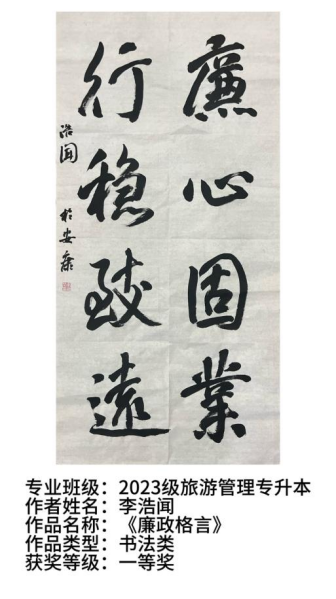 廉心固業
行穩致遠
浩闻 於安康
专业班级：2023级旅游管理专升本
作者姓名：李浩闻
作品名称：《廉政格言》
作品类型：书法类
获奖等级：一等奖